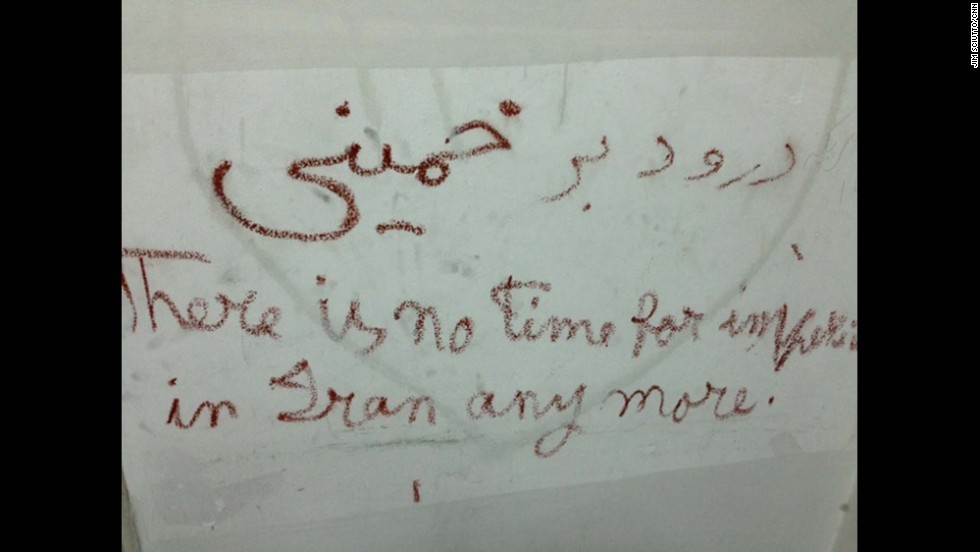 درود بر خمینی
There is no time for
in Iran any more.
JIM SCIUTTO/CNN